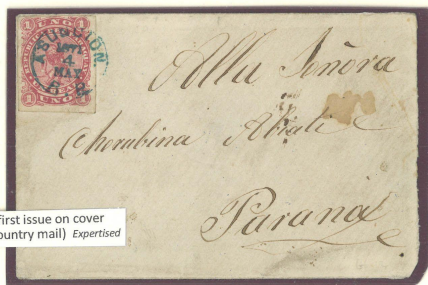 1 UN 1
ASUNCION
4
MAY
1 UNO 1
Alla Señora
Cherubina Abiati
Paraná
first issue on cover
ountry mail) Expertised